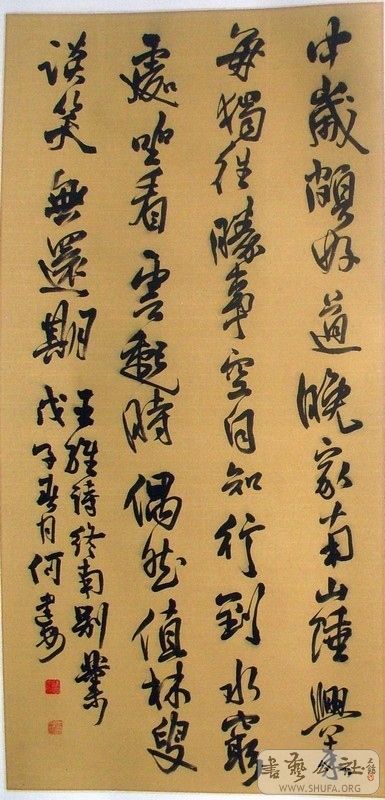 中歲頗好道晚家南山陲興来
每獨往勝事空自知行到水窮
處坐看雲起時偶然值林叟
談笑無還期
王維詩終南别業
戊子春月何
書藝公社
WWW.SHUFA.ORG